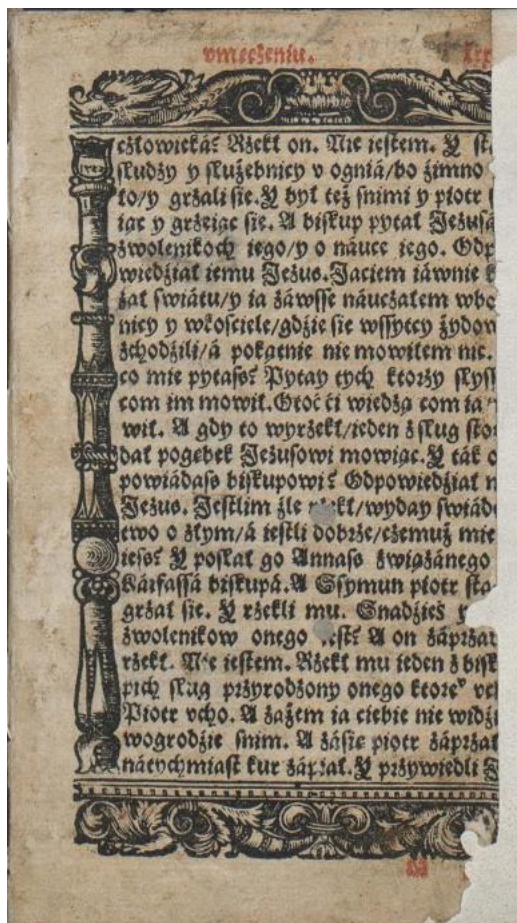 vmęczeniu.
człowieká? Rzekł on. Nie iestem. Y
słudzy y służebnicy v ogniá/bo zimno
to/y grzali sie. Y był też snimi y piotr
iąc y grzeiąc sie. A biskup pytał Jezusá
zwolenikoch iego/y o náuce iego. Odp
wiedział iemu Jezus. Jaciem iáwnie
zał swiátu/y ia záwsse náuczałem wbo
nicy y wkosciele/gdzie sie wssytcy żydow
zchodzili/á pokątnie nie mowiłem nic.
co mie pytass? Pytay tych ktorzy słyss
com im mowił. Otoć ći wiedzą com ia
wił. A gdy to wyrzekł/ieden z sług sto
dał pogebek Jezusowi mowiąc. Y ták o
powiádass biskupowi? Odpowiedział
Jezus. Jestlim źle rzekł/wyday swiáde
ctwo o złym/á iestli dobrze/czemuż mie
iess? Y posłał go Annass związánego
Káifassá biskupá. A Ssymun piotr sta
grzał sie. Y rzekli mu. Snadzieś
zwolenikow onego iest? A on záprzał
rzekł. Nie iestem. Rzekł mu ieden z bisk
pich sług przyrodzony onego ktoreº
Piotr vcho. A zażem ia ciebie nie widzi
wogrodzie snim. A zásie piotr záprzał
nátychmiast kur zápiał. Y przywiedli